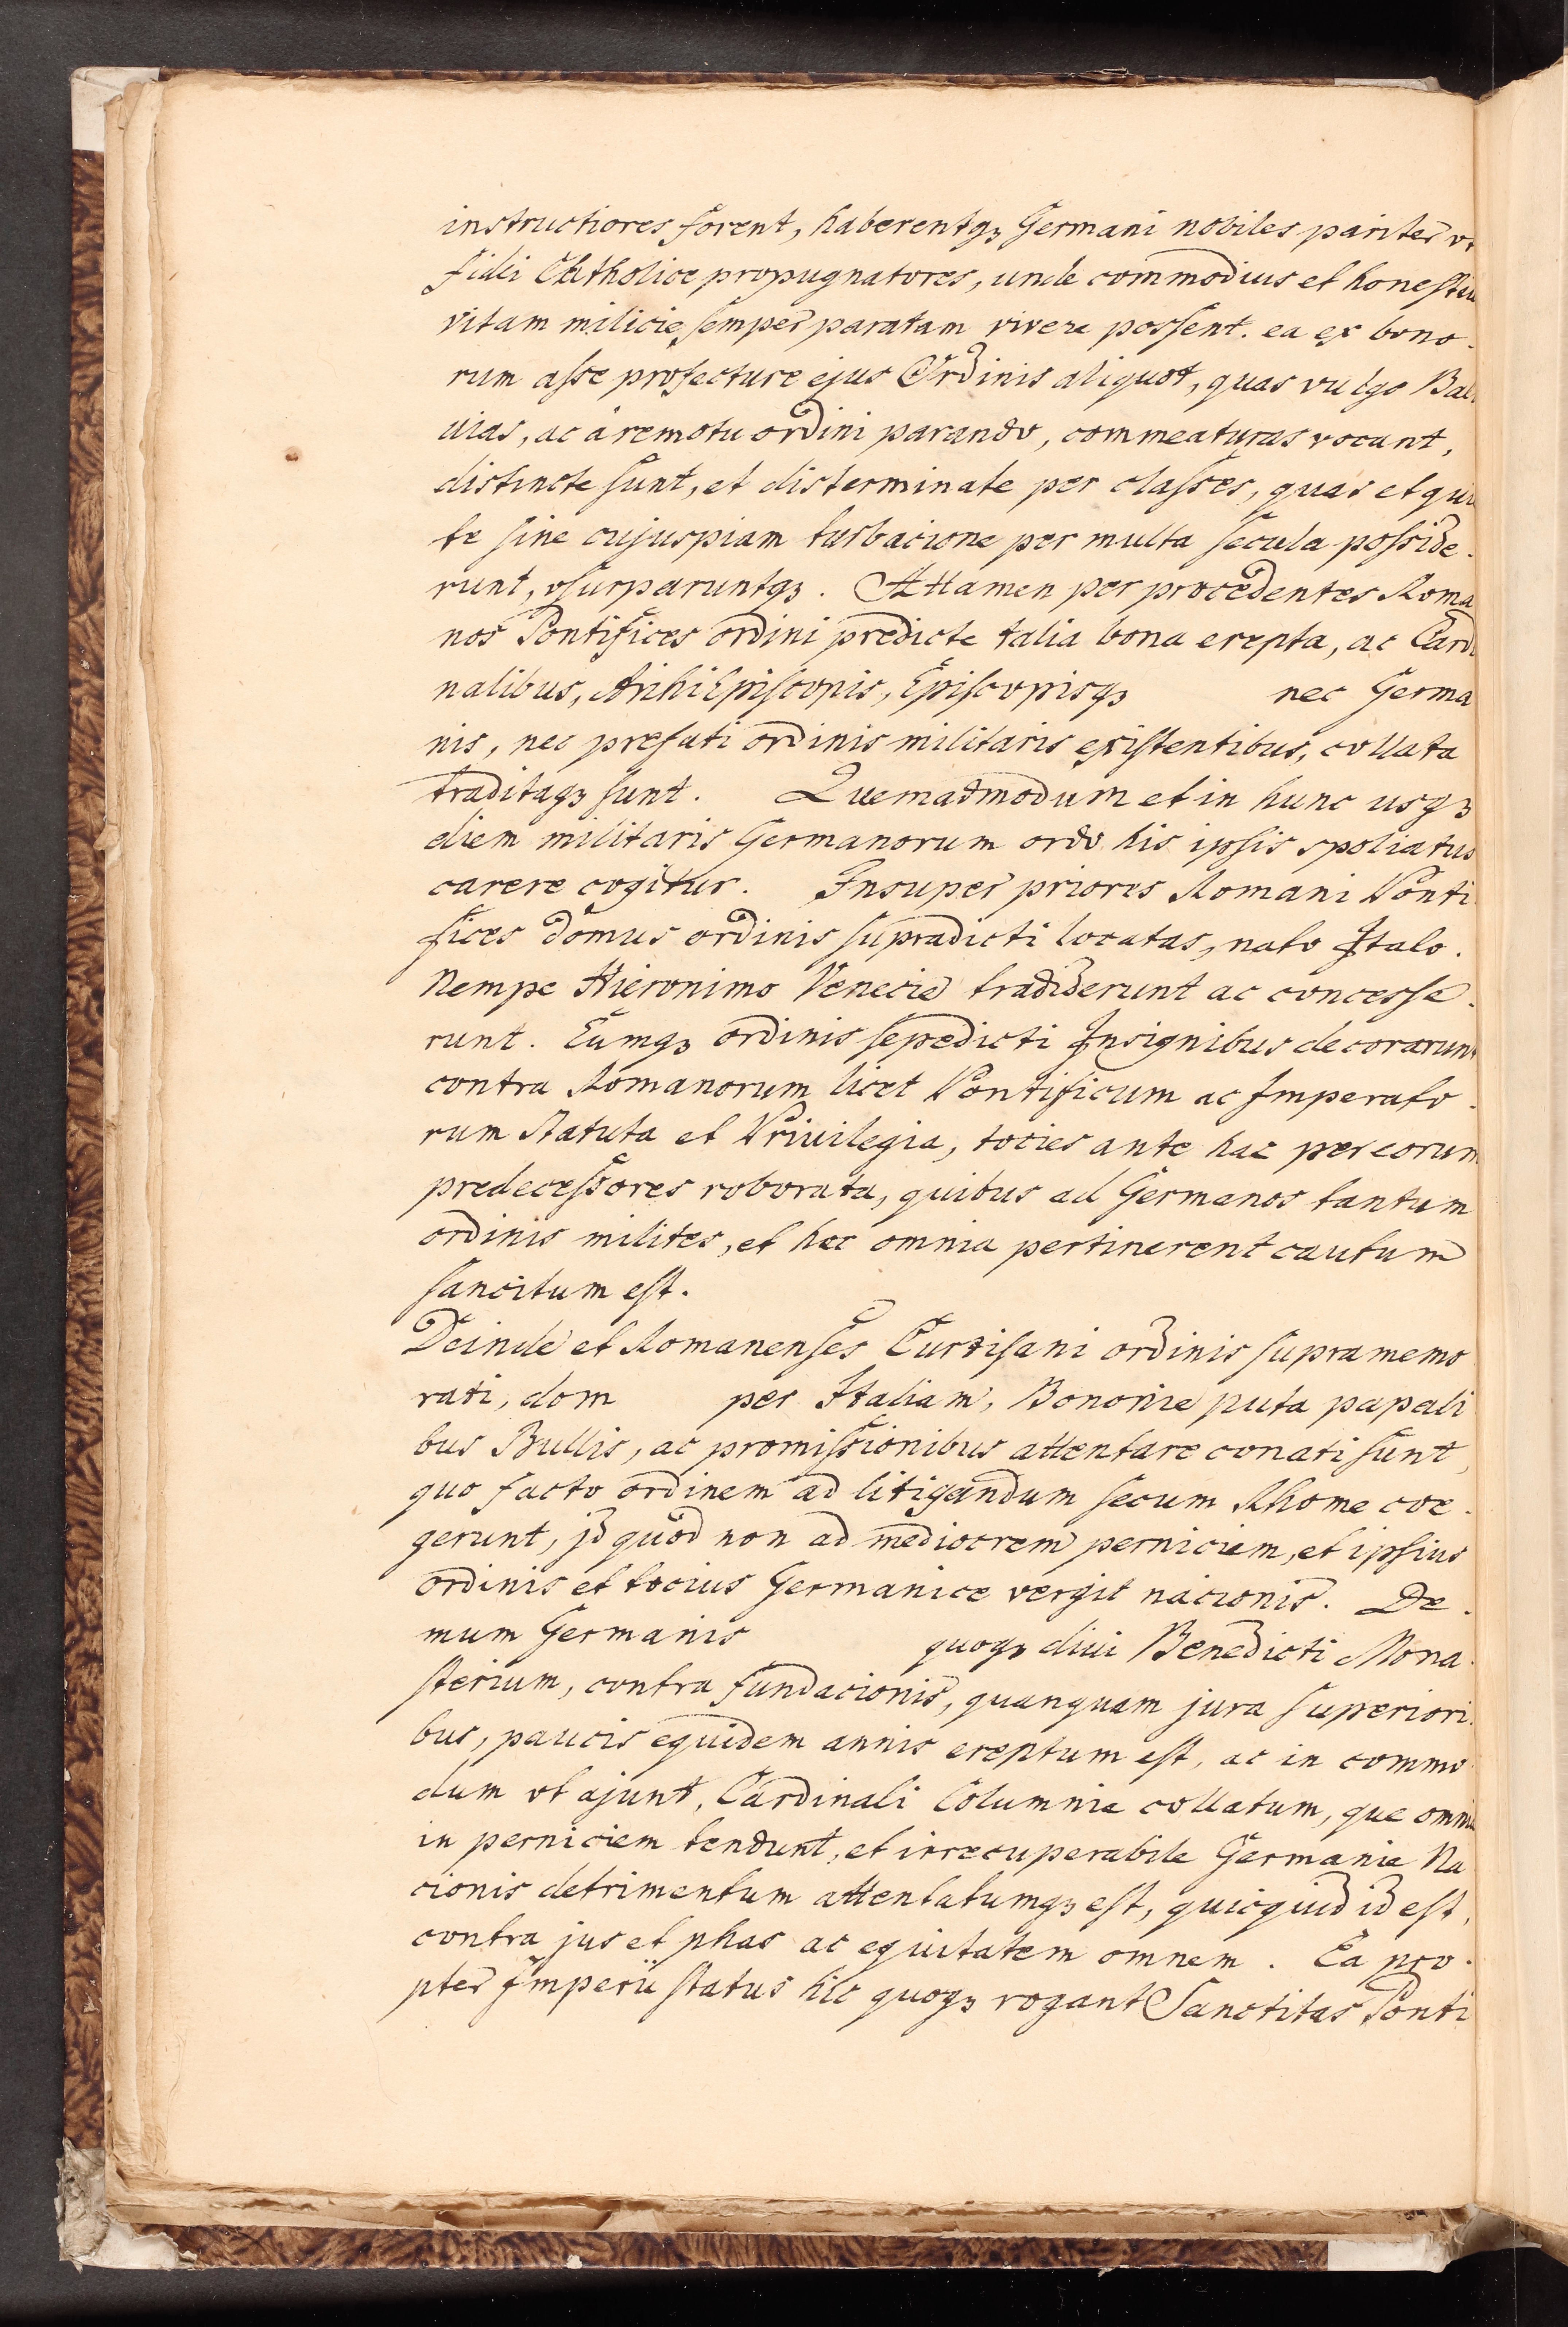 instructiores forent, haberentqꝫ Germani nobiles pariter vt
fidei Chtholice propugnatores, unde commodius et honestiu
vitam milicie semper paratam vivere possent. ea ex bono-
rum asse profecture ejus Ordinis aliquot, quas vulgo Bal
uias, ac à remotu ordini parando, commeaturas vocant,
distincte sunt, et disterminate per classes, quas et qui
te sine cujuspiam turbacione per multa secula posside-
runt, vsurparuntqꝫ. Attamen per procedentes Roma
nos Pontifices ordini predicte talia bona erepta, ac Cardi
nalibus, ArihiEpiscopis, Episcopisqꝫ nec Germa
nis, nec prefati ordinis militaris existentibus, collata
traditaqꝫ sunt. Quemadmodum et in hunc usqꝫ
diem militaris Germanorum ordo his ipsis spoliatus
carere cogitur. Insuper priores Romani Ponti
fices domus ordinis supradicti locatas, nato Italo.
Nempe Hieronimo Venecie tradiderunt ac concesse-
runt. Eumqꝫ ordinis sepedicti Insignibus decorarunt
contra Romanorum licet Pontificum ac Imperato-
rum Statuta et Privilegia, tocies ante hac per eorum
predecessores roborata, quibus ad Germanos tantum
ordinis milites, et hec omnia pertinerent cautum
sancitum est.
Deinde et Romanenses Curtisani ordinis supramemo
rati, dom per Italiam, Bononie puta papali
bus Bullis, ac promissionibus attentare conati sunt,
quo facto ordinem ad litigandum secum Rhome coe-
gerunt, jd quod non ad mediocrem perniciem, et ipsius
ordinis et tocius Germanice vergit nacionis. De-
mum Germanis quoqꝫ diui Benedicti Mona-
sterium, contra fundacionis, quanquam jura superiori-
bus, paucis equidem annis ereptum est, ac in commo
dum vt ajunt, Cardinali Columnie collatum, que omnia
in perniciem tendunt, et irrecuperabile Germanie Na
cionis detrimentum attentatumqꝫ est, quicquid id est,
contra jus et phas ac equitatem omnem. Ea pro-
pter Imperii status hic quoqꝫ rogant Sanctitas Ponti